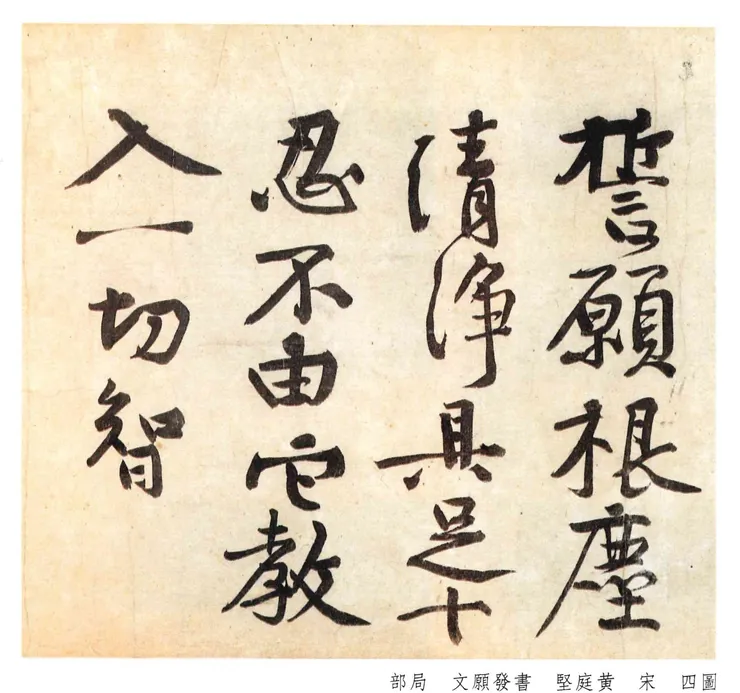 誓願根塵
清淨具足十
忍不由它教
入一切智
圖四 宋 黃庭堅 書發願文 局部